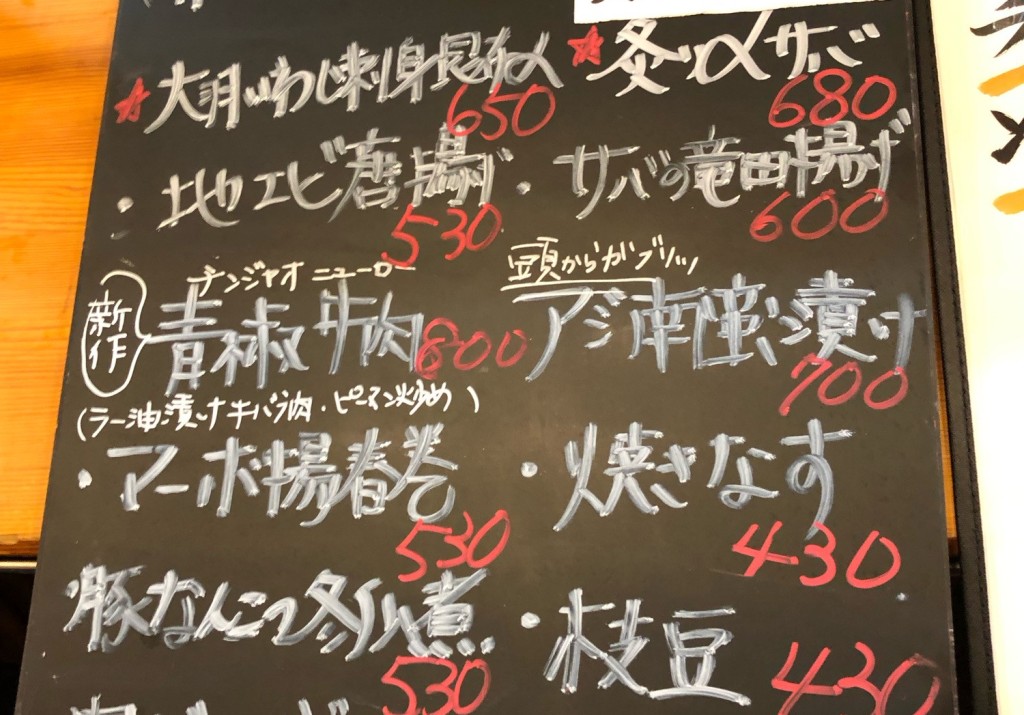 大羽いわし刺身
650
〆サバ
680
地エビ唐揚げ
530
サバの竜田揚げ
600
新作
チンジャオニューロー
青椒牛肉
800
(ラー油漬け牛バラ肉・ピーマン炒め)
頭からガブリッ
アジ南蛮漬け
700
マーボ揚春巻
530
焼きなす
430
豚なんこつ
煮
530
枝豆
430